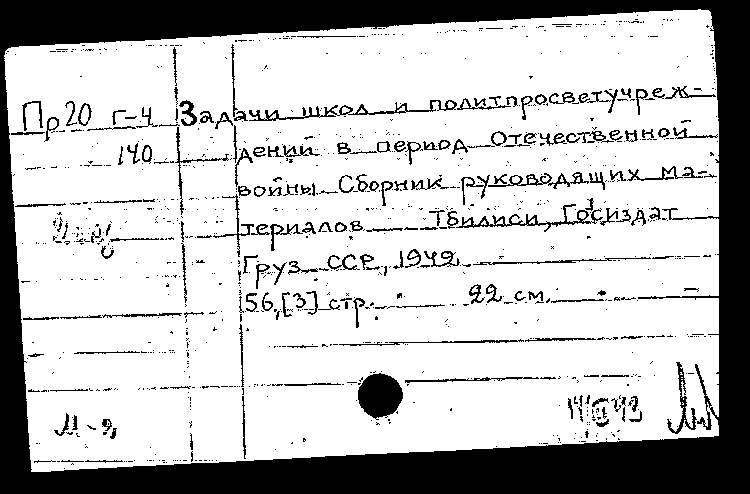 Пр20 г-4 Задачи школ и политпросветучреж-
140 дений в период Отечественной
войны. Сборник руководящих ма-
териалов. Тбилиси, Госиздат
Груз. ССР, 1942.
56,[3] стр. 22 см. -
М-я